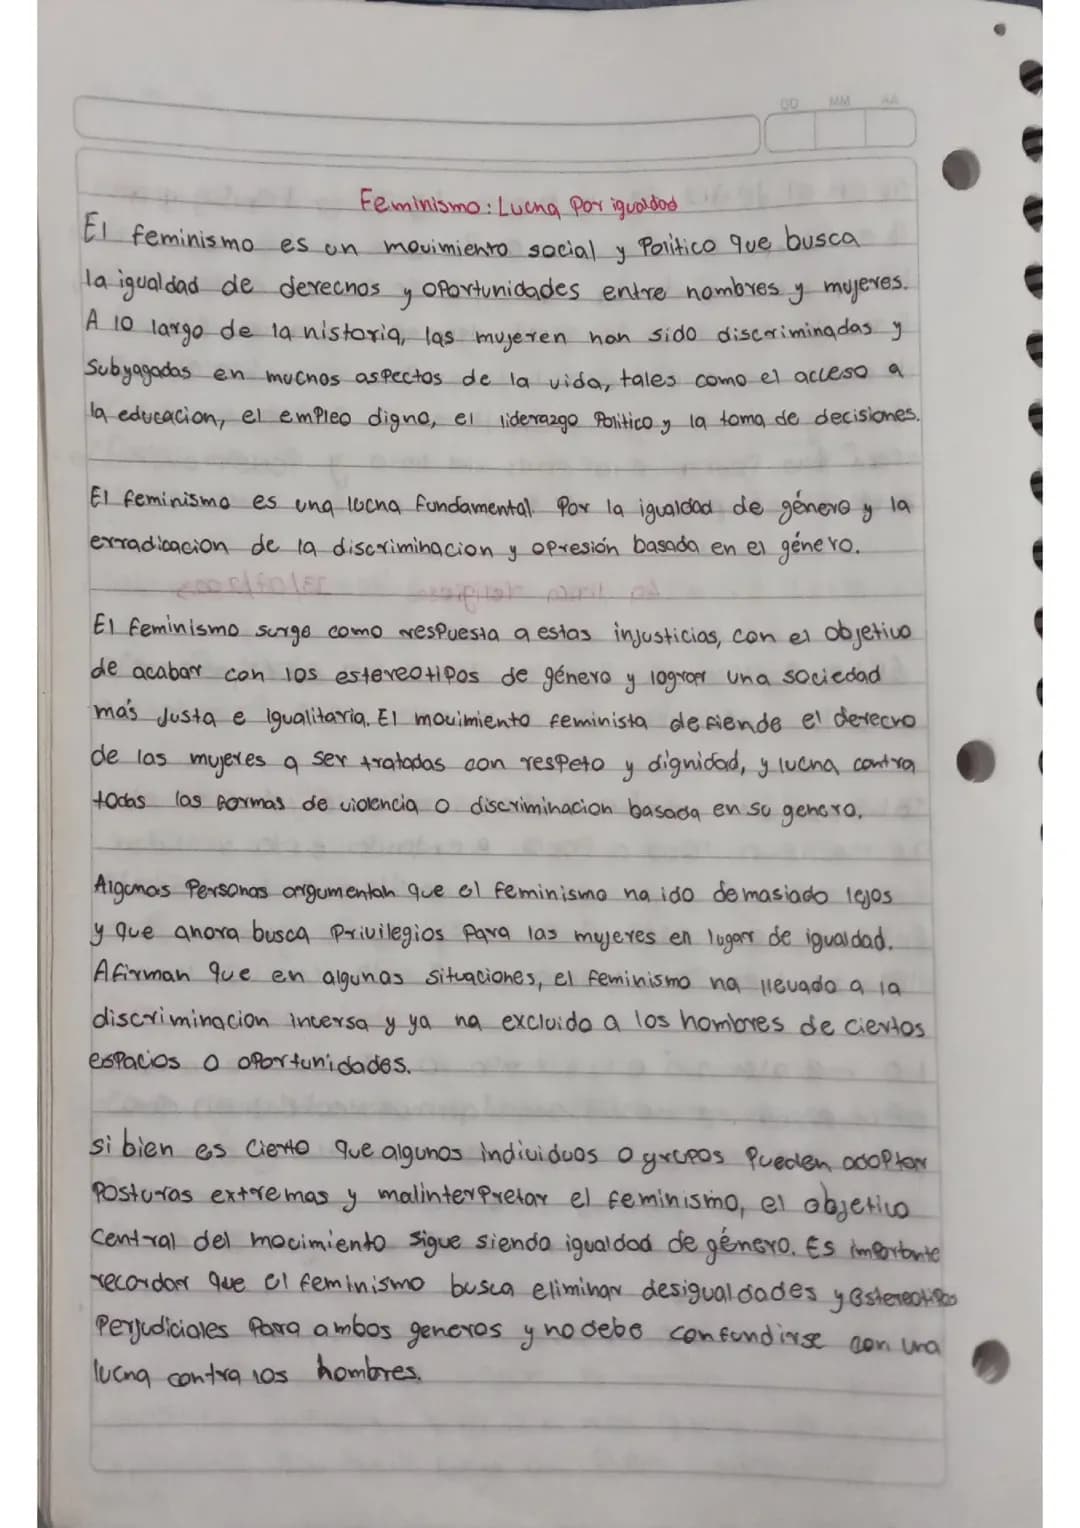 DD MM AA
Feminismo: Lucha Por igualdad
El feminismo es un movimiento social y Politico que busca
la igualdad de derechos y oportunidades entre hombres y mujeres.
A lo largo de la historia, las mujeren han sido discriminadas y
Subyagadas en muchos aspectos de la vida, tales como el acceso a
la educacion, el empleo digno, el liderazgo Politico y la toma de decisiones.
El feminismo es una lucha fundamental. Por la igualdad de género y la
erradicacion de la discriminacion y opresión basada en el género.
El feminismo surge como respuesta a estas injusticias, con el objetivo
de acabar con los estereotipos de género y lograr una sociedad
más Justa e igualitaria. El movimiento feminista defiende el derecho
de las mujeres a ser tratadas con respeto y dignidad, y lucha contra
todas las formas de violencia o discriminacion basada en su genero.
Algunas Personas argumentan que el feminismo ha ido demasiado lejos
y que ahora busca Privilegios Para las mujeres en lugar de igualdad.
Afirman que en algunas situaciones, el feminismo ha llevado a la
discriminacion inversa y ya ha excluido a los hombres de ciertos
espacios o oportunidades.
si bien es cierto que algunos individuos o grupos Pueden adoptar
Posturas extremas y malinterpretar el feminismo, el objetivo
Central del movimiento sigue siendo igualdad de género. Es importante
recordar que el feminismo busca eliminar desigualdades y estereotipos
Perjudiciales Para ambos generos y no debe confundirse con una
lucha contra los hombres.